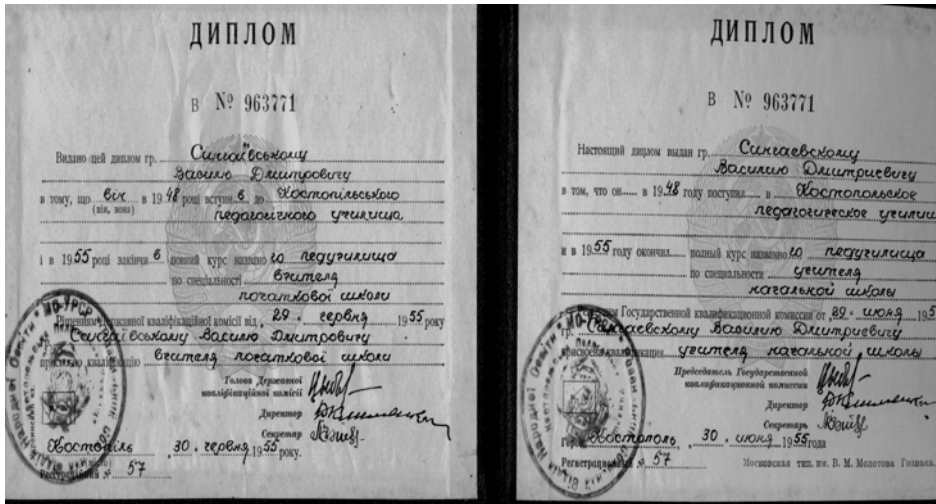 ДИПЛОМ
В № 963771
Видано цей диплом гр. Сингаївському
Василю Дмитровичу
в тому, що він в 1948 році вступив до Костопільського
(він, вона)
педагогічного училища
і в 1955 році закінчив повний курс названого педучилища
по спеціальності вчителя
початкової школи
Рішенням Державної кваліфікаційної комісії від 29. червня 1955 року
Сингаївському Василю Дмитровичу
присвоєно кваліфікацію вчителя початкової школи
Голова Державної
кваліфікаційної комісії
Директор
Секретар
Костопіль 30. червня 1955 року.
Реєстраційний № 57
ДИПЛОМ
В № 963771
Настоящий диплом выдан гр. Сингаевскому
Василию Дмитриевичу
в том, что он в 1948 году поступил в Костопольское
педагогическое училищ
и в 1955 году окончил полный курс названного педучилища
по специальности учителя
начальной школы
Государственной квалификационной комиссии от 29. июня 195
гр. Сингаевскому Василию Дмитриевичу
присвоена квалификация учителя начальной школы
Председатель Государственной
квалификационной комиссии
Директор
Секретарь
Костополь 30. июня 1955 года
Регистрационный № 57
Московская тип. им. В. М. Молотова Гознака.